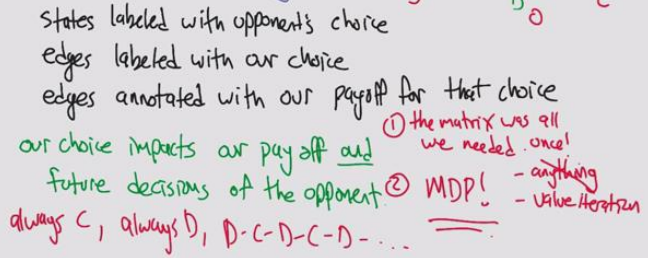 D C
O
states labeled with opponent's choice
edges labeled with our choice
edges annotated with our payoff for that choice
our choice impacts our payoff and
future decisions of the opponent.
always C, always D, D-C-D-C-D-...
① the matrix was all
we needed once!
② MDP!
- anything
- value iteration